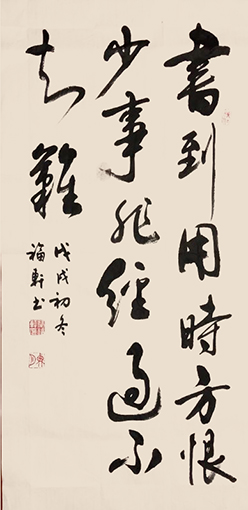 書到用時方恨
少事非經過不
知難
戊戌初冬
福軒書